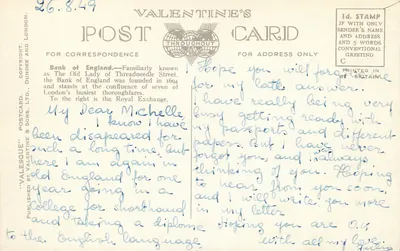 26.8.49
VALENTINE'S
POST CARD
THROUGHOUT
FOR CORRESPONDENCE
FOR ADDRESS ONLY
1d. STAMP
IF WITH ONLY
SENDER'S NAME
AND ADDRESS
AND 5 WORDS
CONVENTIONAL
GREETING
C
PRINTED IN
"VALESQUE" POSTCARD
COPYRIGHT.
PUBLISHED BY VALENTINE & SONS, LTD., DUNDEE AND LONDON.
Bank of England.—Familiarly known
as The Old Lady of Threadneedle Street,
the Bank of England was founded in 1694
and stands at the confluence of seven of
London's busiest thoroughfares.
To the right is the Royal Exchange.
My Dear Michelle,
I know I have
been disappeared for
such a long time but
here I am again in
old England for one
year going in a
college for shorthand
and taking a diplome
to the English language
Hope you will forgive me
for my late answer.
I have really being very
busy getting ready with
my passports and different
papers. But I have never
forgot you and always
thinking of you. Hoping
to hear from you soon
and I will write you more
in my letter.
Hoping you are O.K.
with all my love